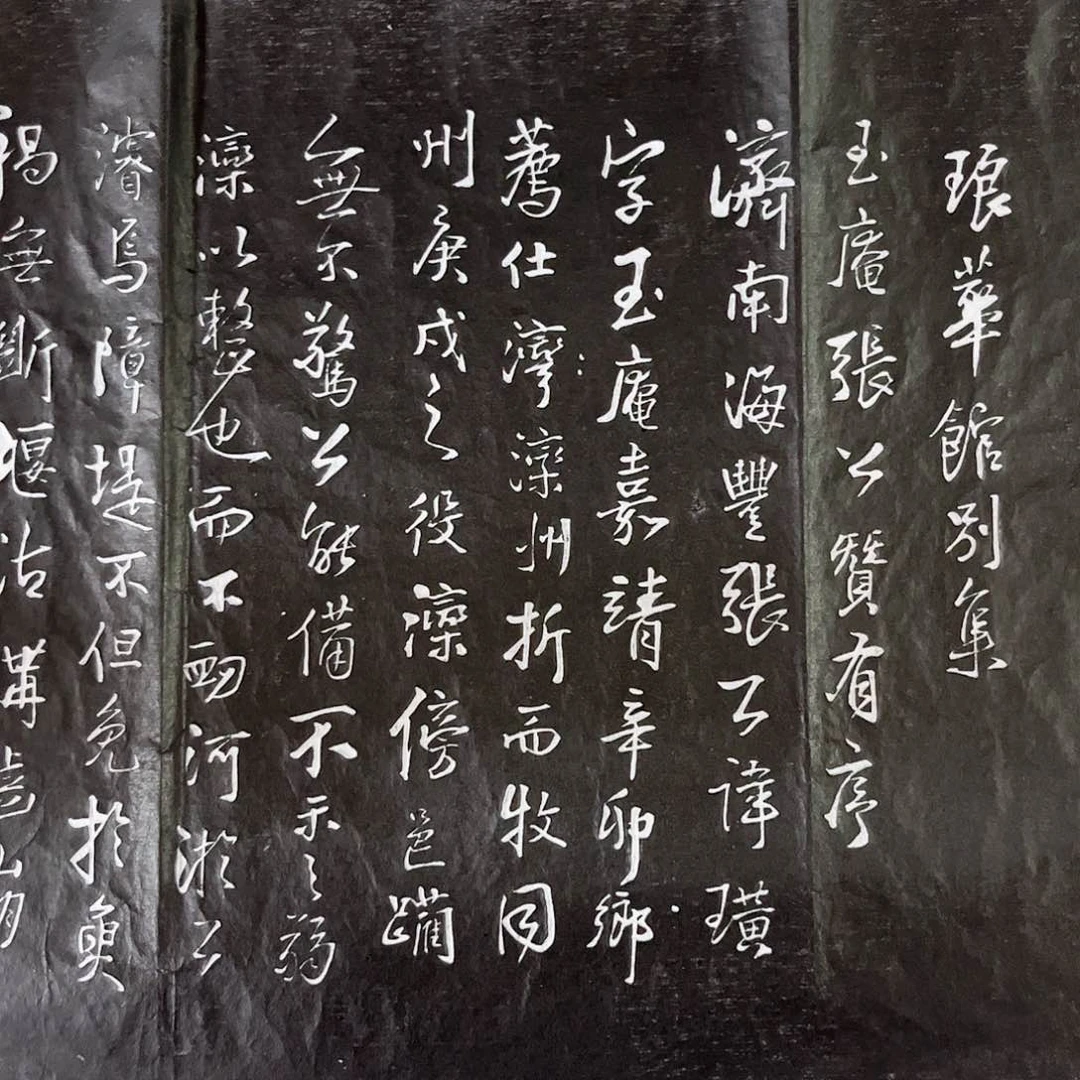 琅華館別集
玉庵張公贊有序
濟南海豐張公諱璜
字玉庵嘉靖辛卯鄉
薦仕灤州折而牧同
州庚戌之役灤傍邑躪
無尔驚公能備不示之弱
灤以整也而不河淤公
濬焉障堤不但免於魚
無斷堰沽